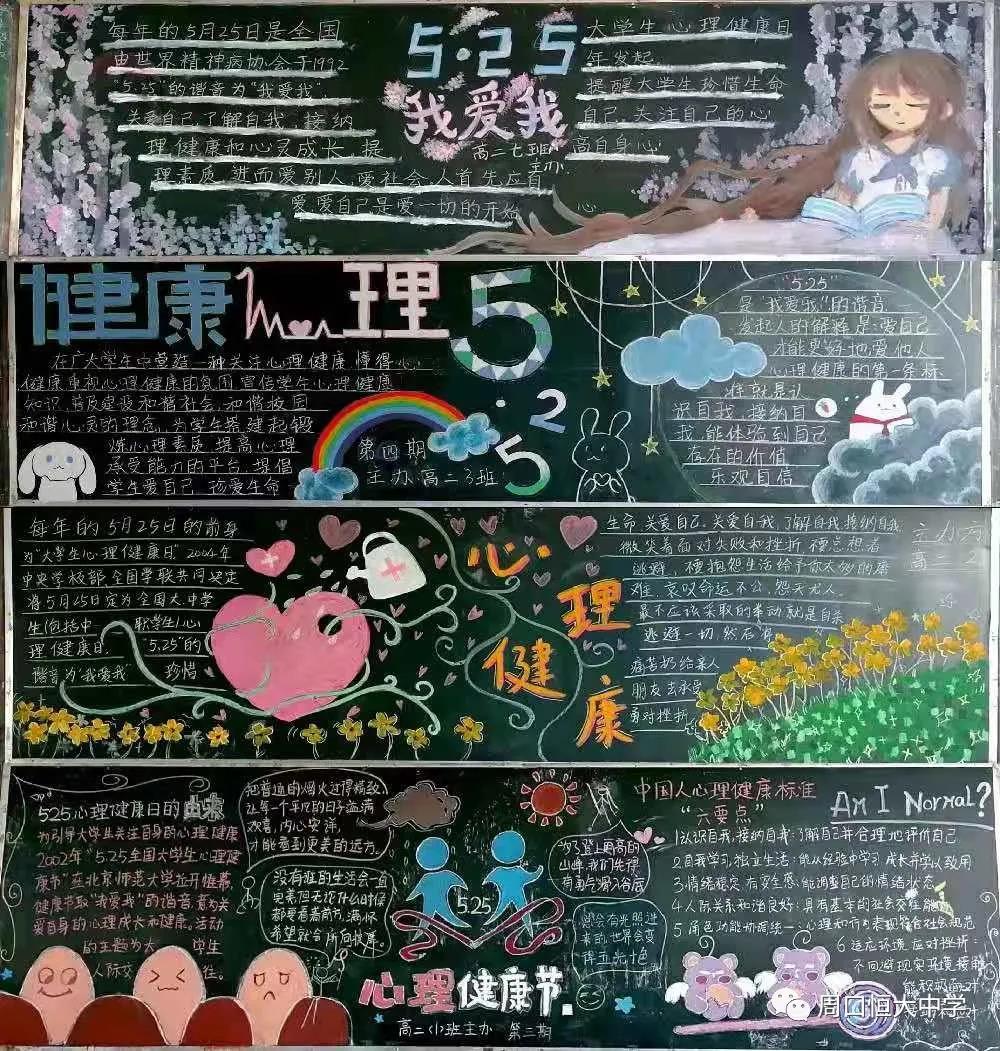 每年的5月25日是全国
由世界精神病协会于1992
"5.25"的谐音为"我爱我",
关爱自己了解自我,接纳
理健康和心灵成长,提
理素质,进而爱别人,爱社会,人首先应首
爱,爱自己是爱一切的开始
心
5·25
我爱我
高二七班
主办
大学生心理健康日
年发起,
提醒大学生珍惜生命
自己,关注自己的心
高自身心
健康心理
5·25
在广大学生中营造一种关注心理健康,懂得心
健康重视心理健康的氛围宣传学生心理健康
知识,普及建设和谐社会,和谐校园
和谐心灵的理念,为学生搭建起锻
炼心理素质,提高心理
承受能力的平台,提倡
学生爱自己,该爱生命
第四期
主办高二3班
"5·25"
是"我爱我"的谐音
发起人的解释是:爱自己
才能更好地爱他人
心理健康的第一条标
准就是认
识自我,接纳自
我,能体验到自己
存在的价值
乐观自信
每年的5月25日的前身
为"大学生心理健康日"2004年
中央学校部,全国学联共同决定
将5月25日定为全国大中学
生(包括中 职学生)心
理健康日, "5.25"的
谐音为"我爱我" 珍惜
心理健康
生命,关爱自己,关爱自我,了解自我,接纳自我
微笑着面对失败和挫折,不要总想着
逃避,不要抱怨生活给予你太多的磨
难,哀叹命运不公,怨天尤人
最不应该采取的举动就是自杀
逃避一切,然后有
痛苦扔给亲人
朋友去承受
勇对挫折
主办方
高二
525心理健康日的由来
为引导大学生关注自身的心理健康
2002年"5.25全国大学生心理健
康节"在北京师范大学拉开帷幕,
健康节取"我爱我"的谐音,意为关
爱自身的心理成长和健康。活动
的主题为大 学生
人际交 性。
把普通的烟火过得精致,
让每一个平凡的日子盈满
欢喜,内心安详,
才能看到更美的远方。
没有谁的生活会一直
完美但无论什么时候
都要看着前方,满怀
希望就会所向披靡。
5.25
心理健康节
高二(1)班主办 第三期
为了登上最高的
山峰,我们先得
有勇气滑入谷底
总会有光照进
来的,世界会变
得五光十色
中国人心理健康标准
"六要点"
Am I Normal?
1认识自我,接纳自我:了解自己并合理地评价自己
2自我学习,独立生活:能从经验中学习,成长并学以致用
3情绪稳定,有安全感:能调整自己的情绪状态
4人际关系和洽良好:具有基本的社会交往能
5角色功能协调统一:心理和行为表现符合社会规范
6适应环境,应对挫折:
不回避现实环境,接纳
能积极应对
周口恒大中学